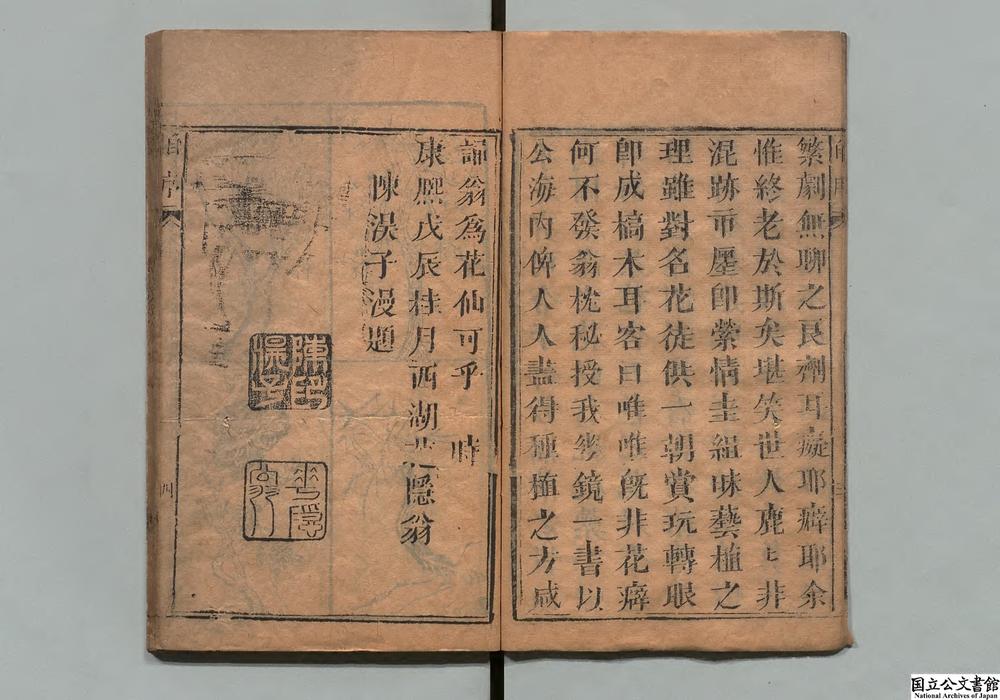 繁劇無聊之良劑耳癡耶癖耶余
惟終老於斯矣堪笑世人鹿鹿非
混跡市廛即縈情圭組昧藝植之
理雖對名花徒供一朝賞玩轉眼
即成槁木耳客曰唯唯旣非花癖
何不發翁枕秘授我花鏡一書以
公海內俾人人盡得種植之方咸
誦翁為花仙可乎 時
康熙戊辰桂月西湖花隱翁
陳淏子漫題
自序
四
花隱翁
国立公文書館
National Archives of Japan